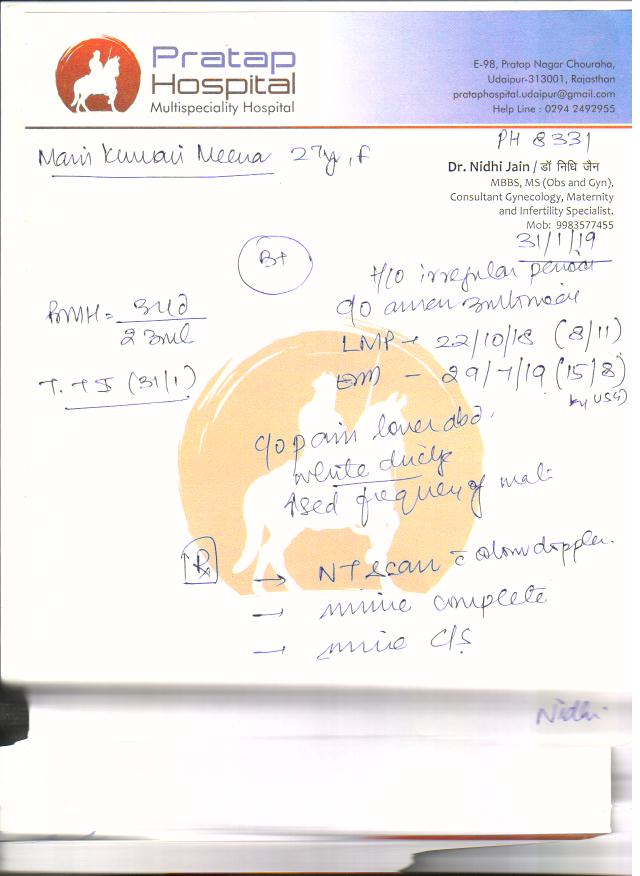 Pratap
Hospital
Multispeciality Hospital
E-98, Pratap Nagar Chouraha,
Udaipur-313001, Rajasthan
prataphospital.udaipur@gmail.com
Help Line : 0294 2492955
PH 8331
Kumari Meena 27yr, F
Dr. Nidhi Jain / डॉ निधि जैन
MBBS, MS (Obs and Gyn),
Consultant Gynecology, Maternity
and Infertility Specialist.
Mob: 9983577455
31/1/19
B+
H/O irregular period
LMP → 22/10/18 (8/11)
- 29/7/19 (15/8)
by USG
(31/1)
c/o pain lower abd.
white
frequency of
Rx
→ NT scan c colour doppler.
→ urine complete
→ urine C/S
Nidhi